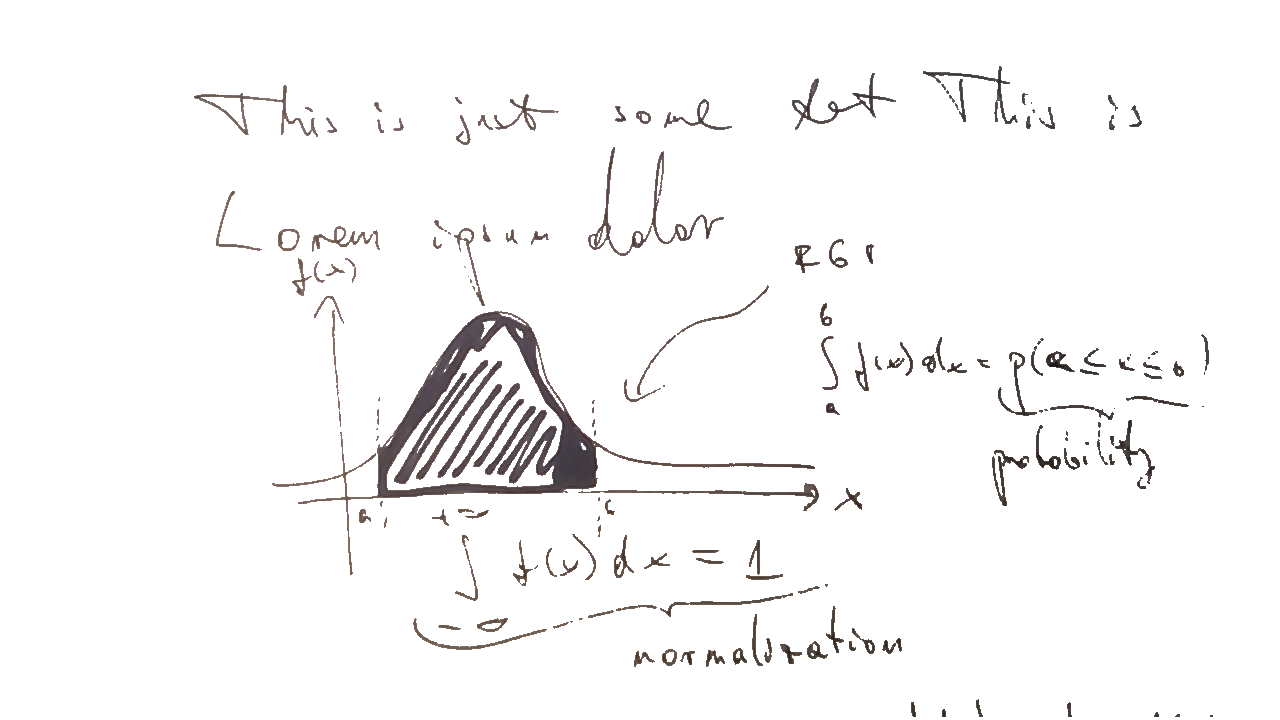 This is just some text This is
Lorem ipsum dolor
f(x)
b
∫ f(x) dx = p(a ≤ x ≤ b)
a
probability
x
a
+∞
∫ f(x) dx = 1
-∞
normalization